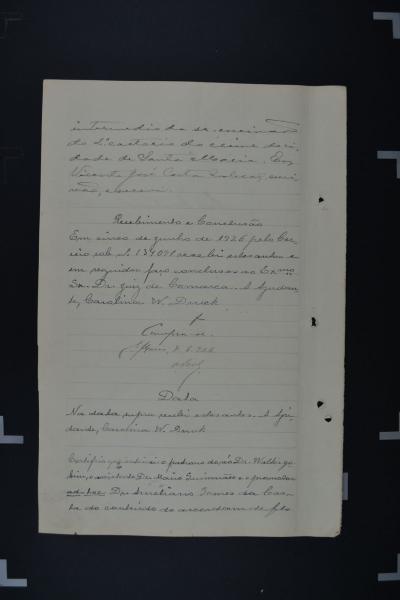 intermedio do sr. escrivão
do 2º cartorio do crime da ci-
dade de Santa Maria. Eu,
Vicente José Costa escri-
vão, escrevi.
Recebimento e Conclusão
Em cinco de junho de 1926 pelo Cor-
reio sob nº 134091 recebi estes autos e
em seguida faço conclusos ao Exmo
Sr. Dr. Juiz de Comarca. A Ajudan-
te, Carolina W. Druck
Cumpra-se.
Data
Na data supra recebi estes autos. A Aju-
dante, Carolina W. Druck
Certifico que intimei o patrono do réo Dr. Walter Jo-
bim, o assistente Dr. Mario Guimarães e o promotor
ad-hoc Dr. Tones da Cos-
ta do conteúdo do accordam de fls